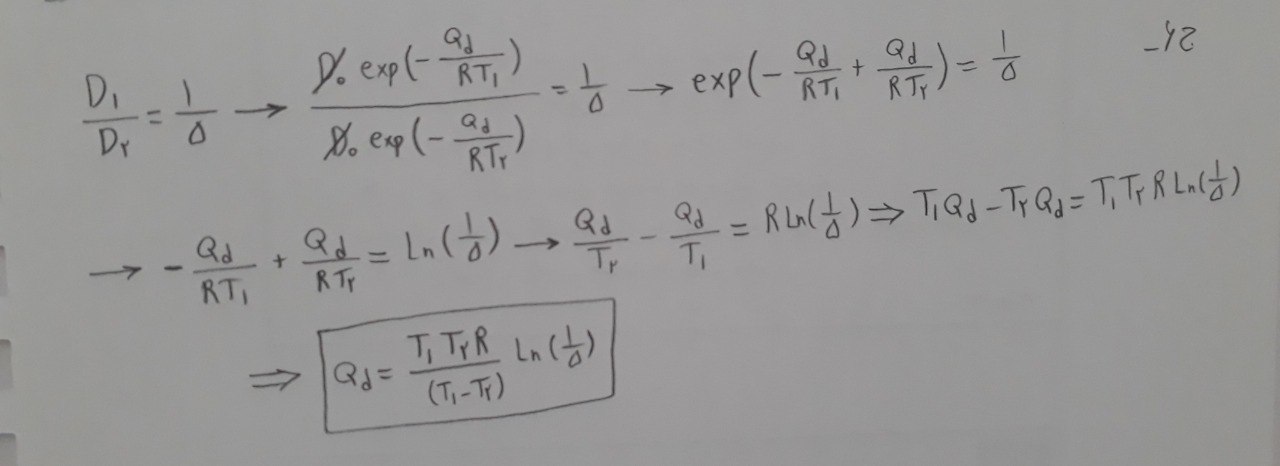 D₁/D۲ = ۱/۵ → D₀ exp(-Qd/RT₁) / D₀ exp(-Qd/RT۲) = ۱/۵ → exp(-Qd/RT₁ + Qd/RT۲) = ۱/۵
→ -Qd/RT₁ + Qd/RT۲ = Ln(۱/۵) → Qd/T۲ - Qd/T₁ = R Ln(۱/۵) ⇒ T₁Qd - T۲Qd = T₁T۲R Ln(۱/۵)
⇒ Qd = T₁T۲R/(T₁-T۲) Ln(۱/۵)